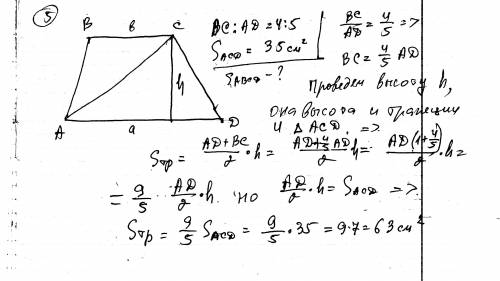 5
B b C
BC : AD = 4:5
S_ACD = 35 см²
S_ABCD - ?
h
A a D
BC/AD = 4/5 =>
BC = 4/5 AD
Проведем высоту h,
она высота и трапеции
и △ ACD. =>
Sтр = (AD+BC)/2 · h = (AD+4/5 AD)/2 · h = AD(1+4/5)/2 · h =
= 9/5 · AD/2 · h. но AD/2 · h = S_ACD =>
Sтр = 9/5 S_ACD = 9/5 · 35 = 9·7 = 63 см²